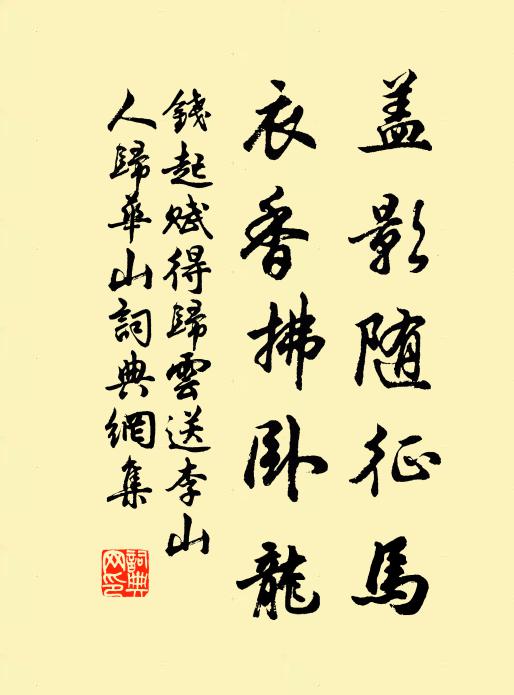 盖影随征馬
衣香拂卧龍
錢起賦得歸雲送李山
人歸華山詞典網集
詞典网印